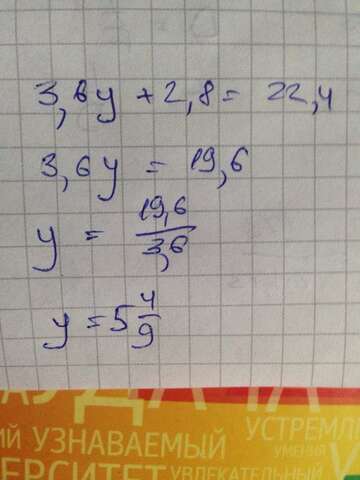 3,6y + 2,8 = 22,4
3,6y = 19,6
y = 19,6/3,6
y = 5 4/9
УДАЧА
УЗНАВАЕМЫЙ УСТРЕМЛ
УМЕНИЯ
ЕРСИТЕТ УВЛЕКАТЕЛЬНЫЙ